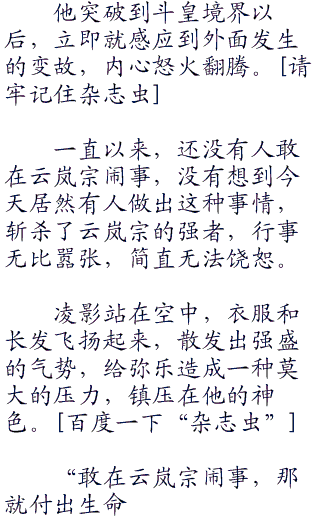 他突破到斗皇境界以
后，立即就感应到外面发生
的变故，内心怒火翻腾。[请
牢记住杂志虫]
一直以来，还没有人敢
在云岚宗闹事，没有想到今
天居然有人做出这种事情，
斩杀了云岚宗的强者，行事
无比嚣张，简直无法饶恕。
凌影站在空中，衣服和
长发飞扬起来，散发出强盛
的气势，给弥乐造成一种莫
大的压力，镇压在他的神
色。[百度一下“杂志虫”]
“敢在云岚宗闹事，那
就付出生命